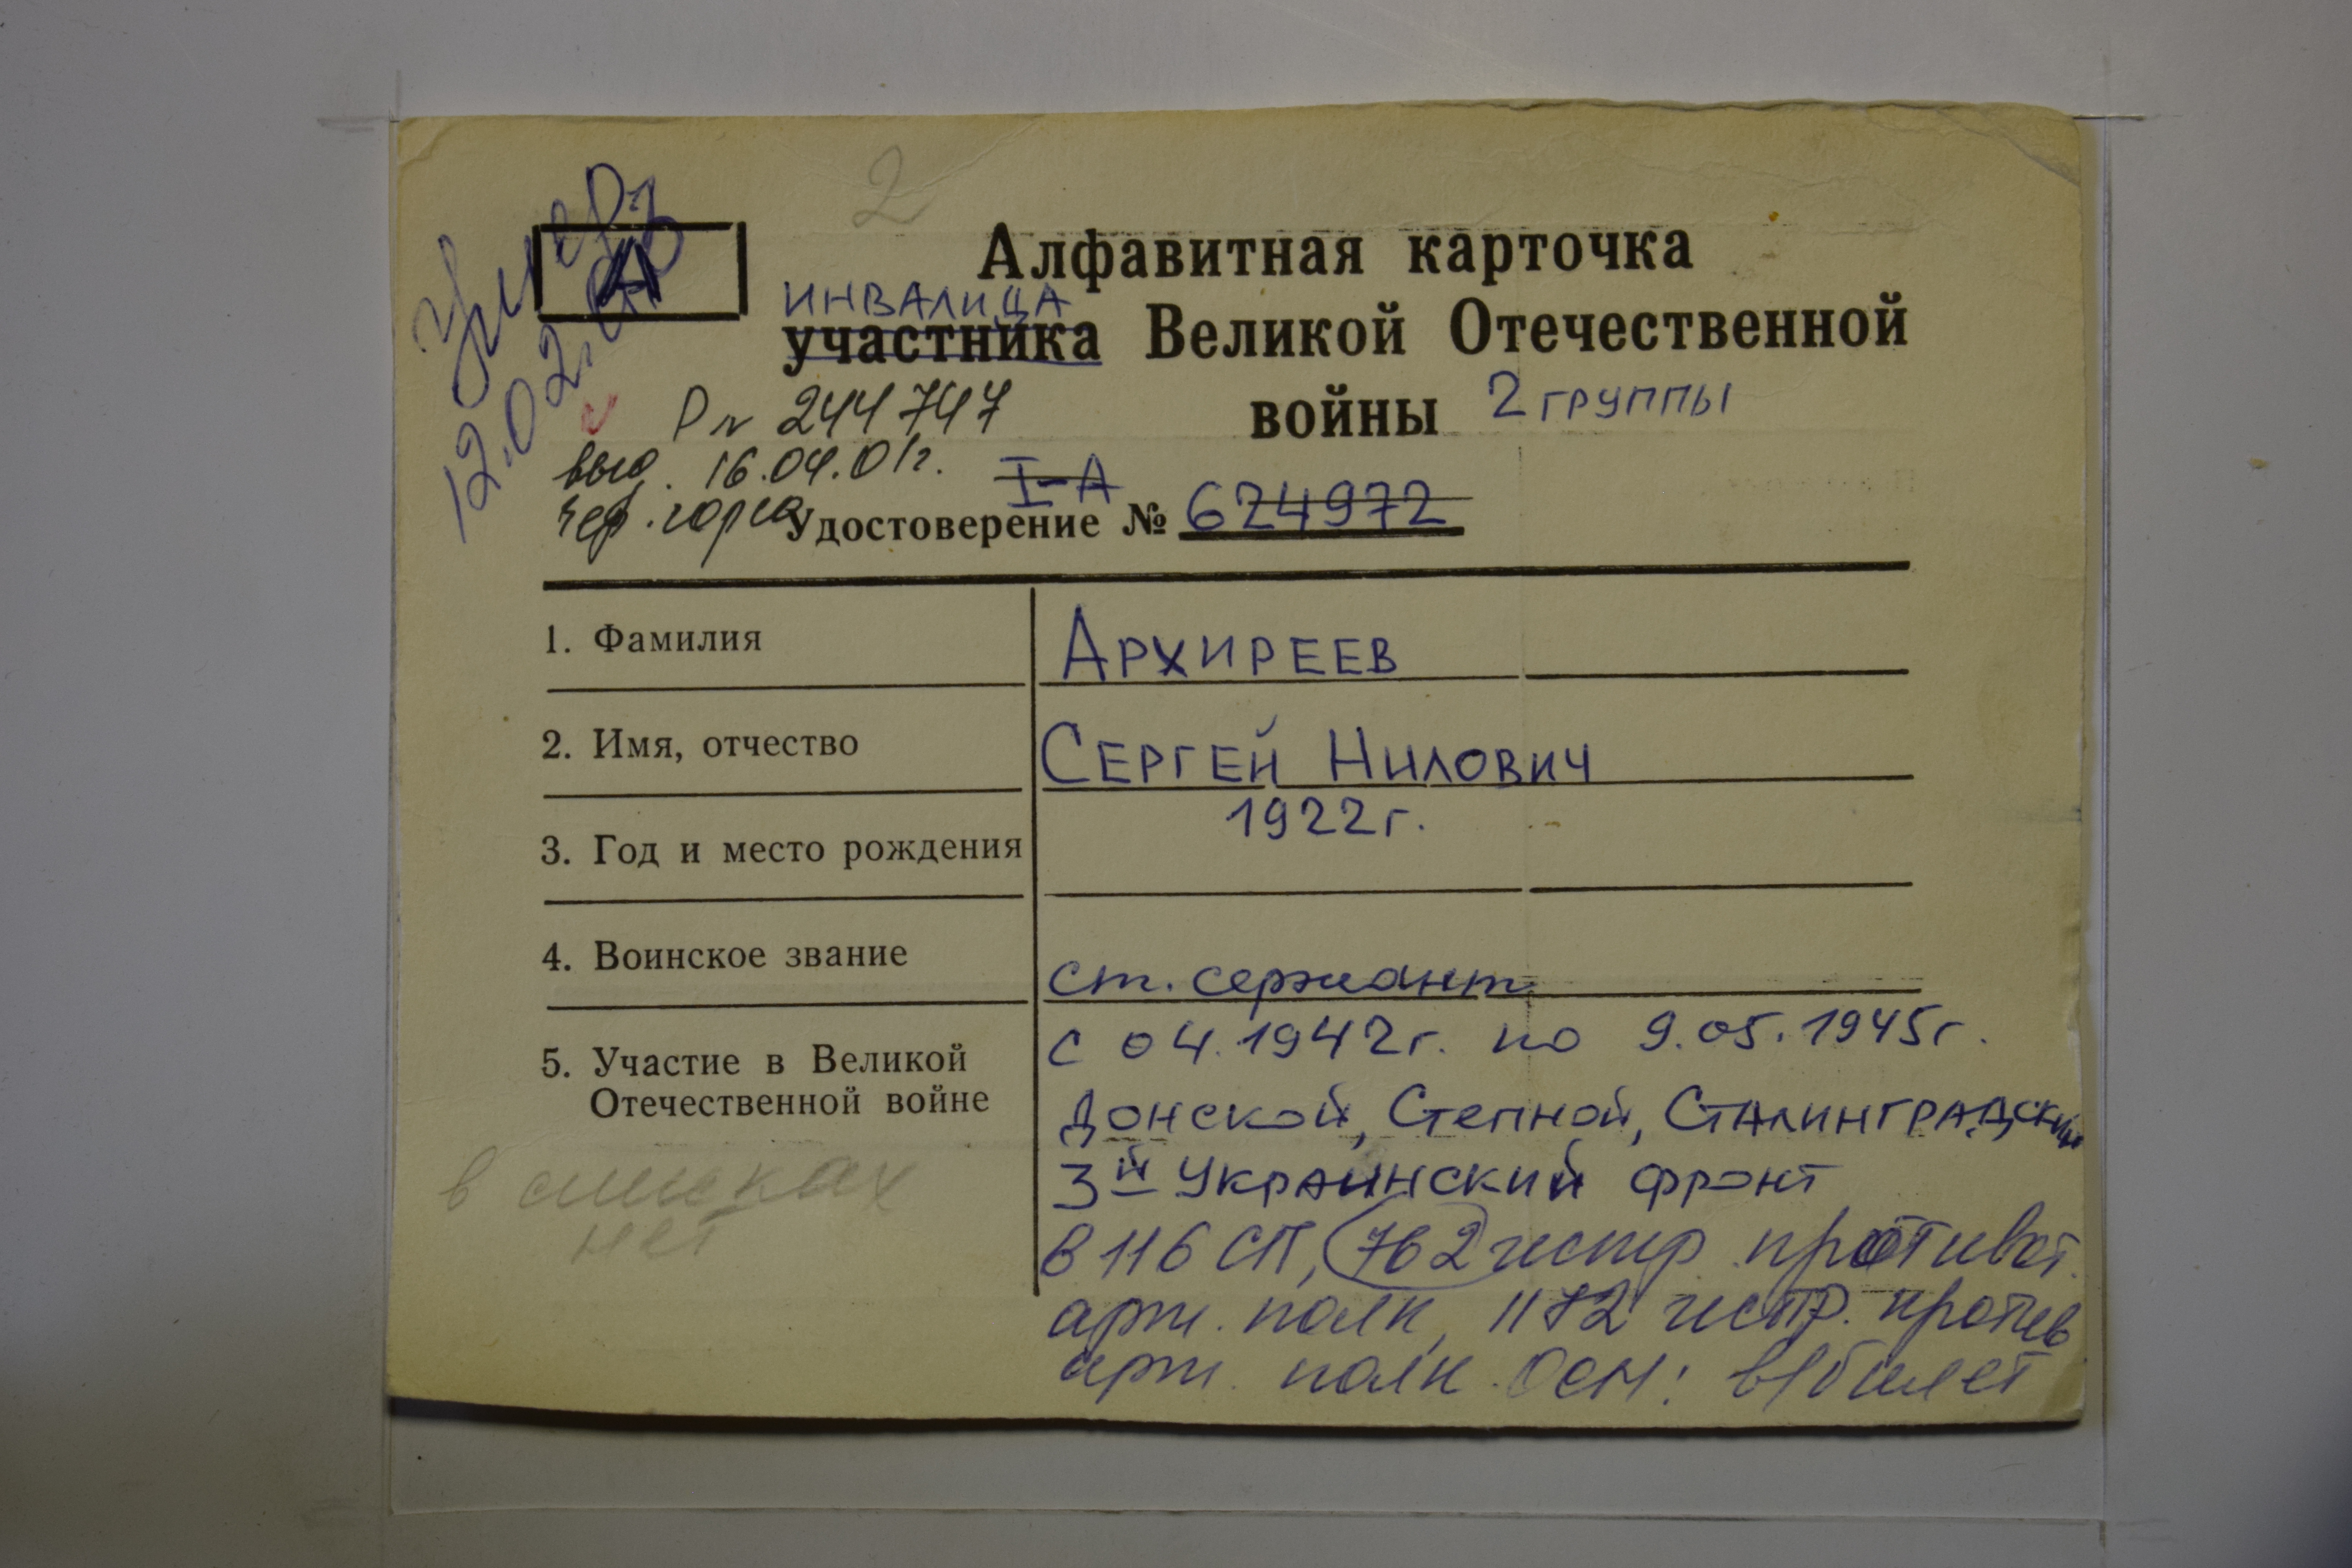 2
Умер
12.02.
А
Алфавитная карточка
ИНВАЛИДА
участника Великой Отечественной
войны 2 группы
Р № 244747
выд. 16.04.01г.
I-А
Удостоверение № 624972
1. Фамилия
Архиреев
2. Имя, отчество
Сергей Нилович
3. Год и место рождения
1922г.
4. Воинское звание
ст. сержант
5. Участие в Великой
Отечественной войне
с 04.1942г. по 9.05.1945г.
Донской, Степной, Сталинградский
3й Украинский фронт
в 116 СП, 762 истр. противот.
арт. полк, 1172 истр. против
арт. полк. Осн: в/билет
в списках
нет